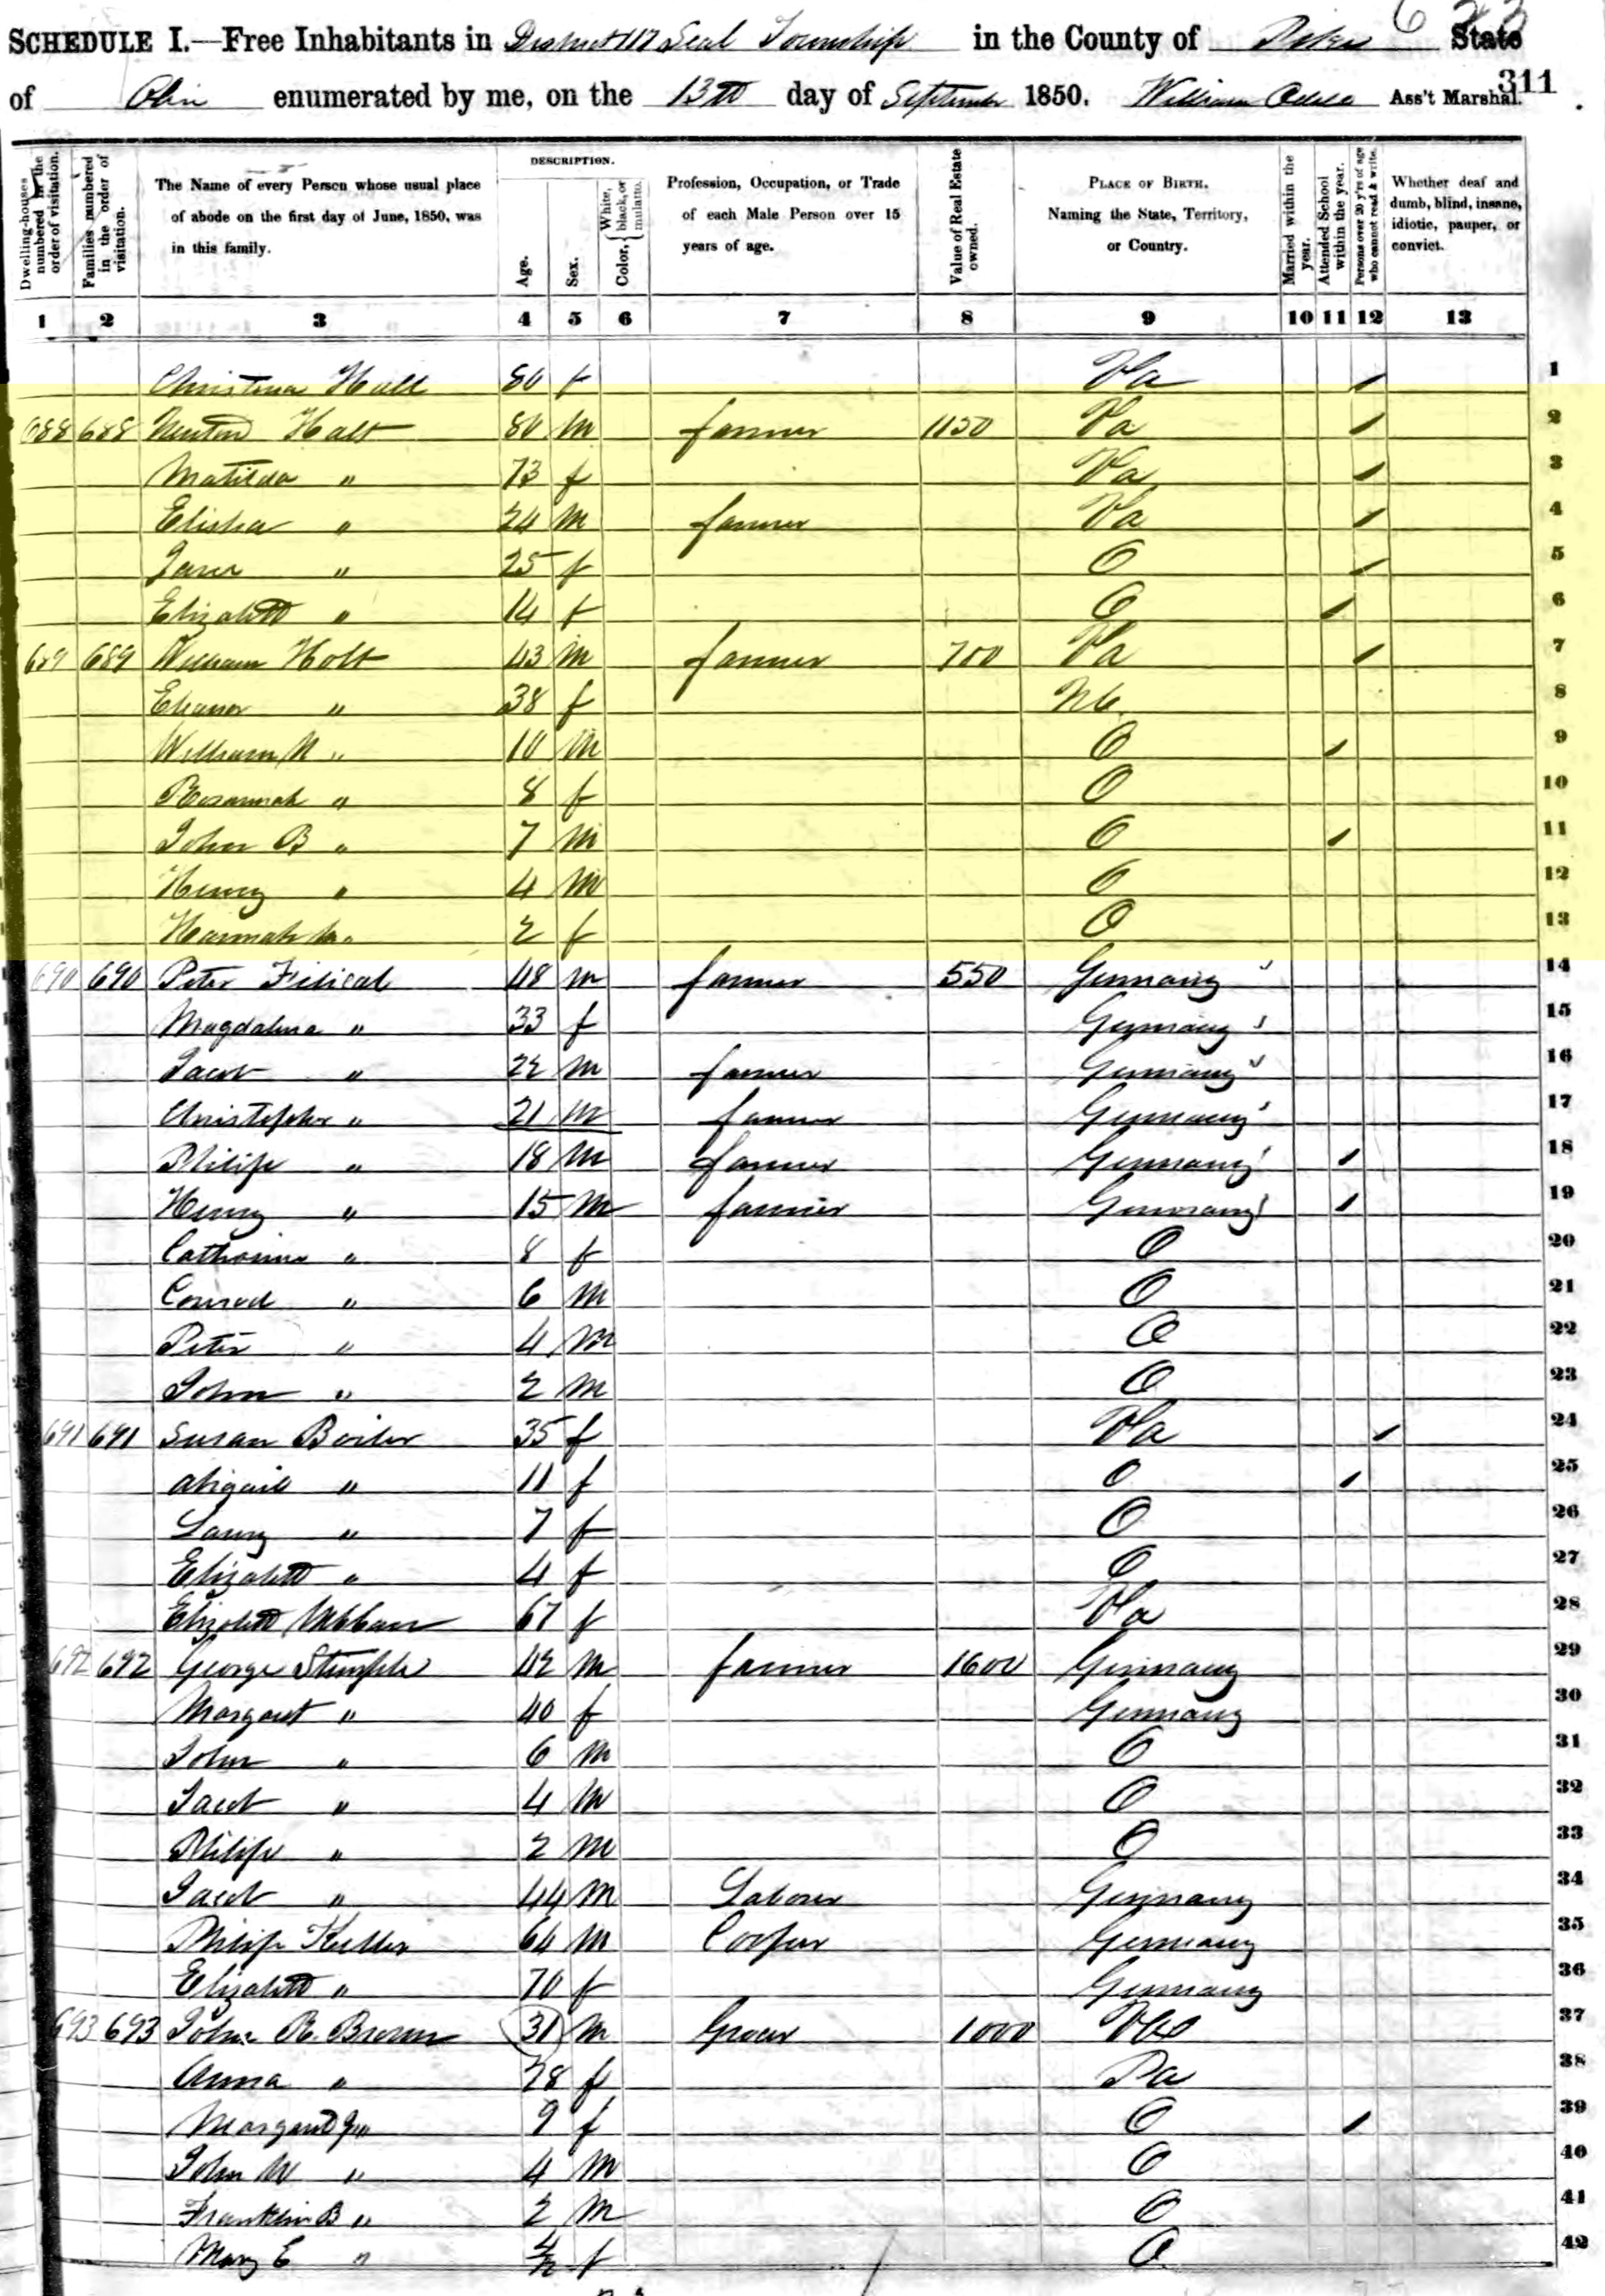 633
SCHEDULE I.—Free Inhabitants in District 117 Seal Township in the County of Pike State
311
of Ohio enumerated by me, on the 13th day of September 1850. William Ass't Marshal.
Dwelling-houses numbered in the order of visitation.
Families numbered in the order of visitation.
The Name of every Person whose usual place of abode on the first day of June, 1850, was in this family.
DESCRIPTION.
Age.
Sex.
Color, { White, black, or mulatto.
Profession, Occupation, or Trade of each Male Person over 15 years of age.
Value of Real Estate owned.
PLACE OF BIRTH. Naming the State, Territory, or Country.
Married within the year.
Attended School within the year.
Persons over 20 y'rs of age who cannot read & write.
Whether deaf and dumb, blind, insane, idiotic, pauper, or convict.
1 2 3 4 5 6 7 8 9 10 11 12 13
Christena 80 f Va / 1
688 688 Newton Halt 80 m farmer 1150 Va / 2
Matilda " 73 f Va / 3
Elisha " 24 m farmer Va / 4
Jane " 25 f O / 5
Elizabeth " 14 f O / 6
689 689 William Holt 43 m farmer 700 Va / 7
Eleanor " 38 f NC 8
William N " 10 m O / 9
Rosannah " 8 f O 10
John B " 7 m O / 11
Henry " 4 m O 12
Hannah " 2 f O 13
690 690 Peter 48 m farmer 550 Germany 14
Magdalena " 33 f Germany 15
Jacob " 22 m farmer Germany 16
Christopher " 21 m farmer Germany 17
Philip " 18 m farmer Germany / 18
Henry " 15 m farmer Germany / 19
Catharine " 8 f O 20
Conrad " 6 m O 21
Peter " 4 m O 22
John " 2 m O 23
691 691 Susan 35 f Va / 24
Abigail " 11 f O / 25
" 7 f O 26
Elizabeth " 4 f O 27
Elizabeth 67 f Va 28
692 692 George 42 m farmer 1600 Germany 29
Margaret " 40 f Germany 30
John " 6 m O 31
Jacob " 4 m O 32
Philip " 2 m O 33
Jacob " 44 m Laborer Germany 34
Philip Keller 64 m Cooper Germany 35
Elizabeth " 70 f Germany 36
693 693 John R. Brown 31 m Grocer 1000 37
Anna " 28 f Pa 38
Margaret J " 9 f O / 39
John W " 4 m O 40
Franklin B " 2 m O 41
Mary E " f O 42